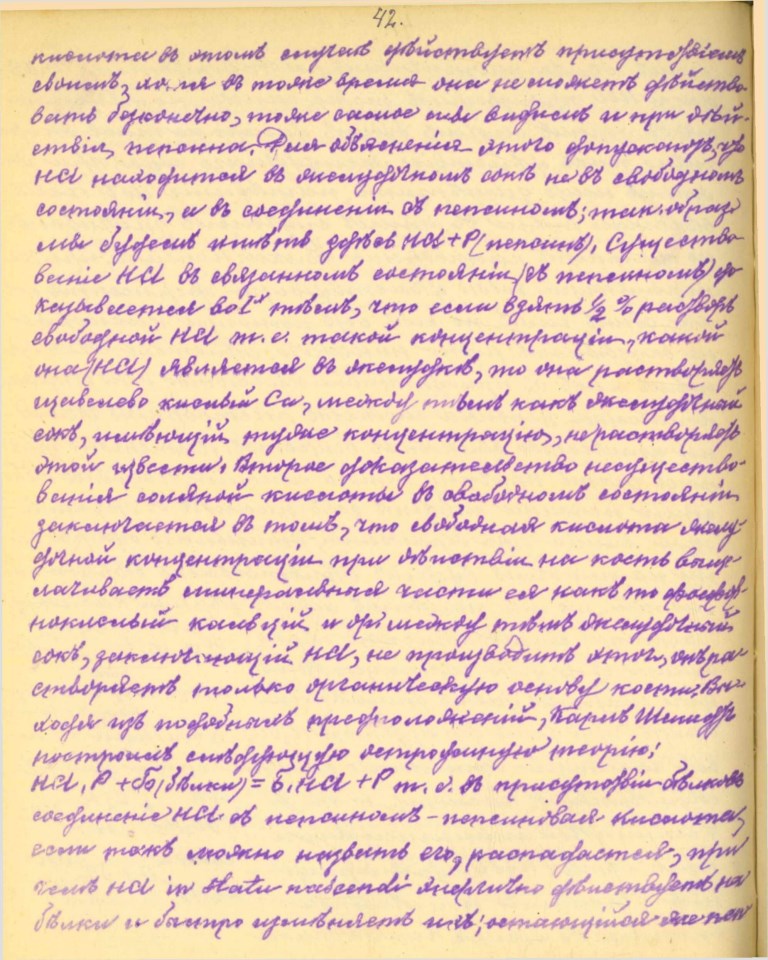 42.
кислота въ этомъ случаѣ дѣйствуетъ присутствіемъ
своимъ, хотя въ тоже время она не можетъ дѣйство-
вать безконечно, тоже самое мы видимъ и при дѣй-
ствіи пепсина. Для объясненія этого допускаютъ, что
HCl находится въ желудочномъ сокѣ не въ свободномъ
состояніи, а въ соединеніи съ пепсиномъ; так. образ.
мы будемъ имѣть здѣсь HCl+P(пепсинъ). Существо-
ваніе HCl въ связанномъ состояніи (съ пепсиномъ) до
казывается во 1х тѣмъ, что если взять ½ % растворъ
свободной HCl т. е. такой концентраціи, какой
она (HCl) является въ желудкѣ, то она растворяетъ
щавелево кислый Ca, между тѣмъ какъ желудочный
сокъ, имѣющій туже концентрацію, не растворяетъ
этой извести. Второе доказательство несущество-
ванія соляной кислоты въ свободномъ состояніи
заключается въ томъ, что свободная кислота желу-
дочной концентраціи при дѣйствіи на кость
минеральныя части ея какъ то фосфор-
нокислый кальцій и др. между тѣмъ желудочный
сокъ, заключающій HCl, не производитъ этого, онъ ра-
створяетъ только органическую основу кости. Вы-
ходя изъ подобныхъ предположеній, Карлъ Шмидтъ
построилъ слѣдующую остроумную теорію:
HCl, P + б(бѣлки) = б, HCl + P т. е. въ присутствіи бѣлковъ
соединеніе HCl съ пепсиномъ - пепсиновая кислота,
если такъ можно назвать его, распадается, при
чемъ HCl in statu nascendi энергично дѣйствуетъ на
бѣлки и быстро измѣняетъ ихъ; остающійся же пеп